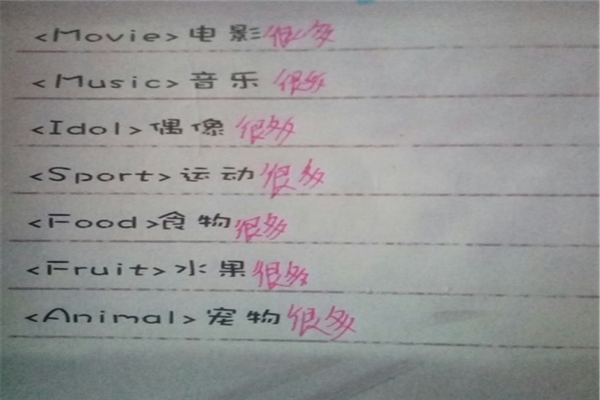 <Movie>电影很多
<Music>音乐 很多
<Idol>偶像 很多
<Sport>运动很多
<Food>食物很多
<Fruit>水果很多
<Animal>宠物很多